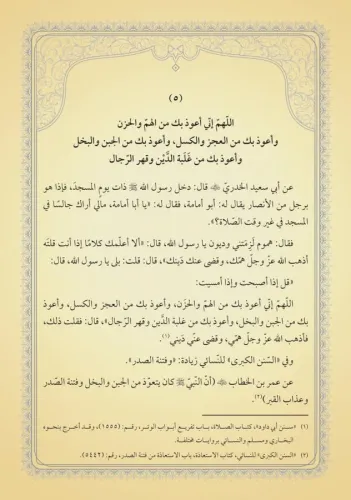 (٥)
اللّهمّ إنّي أعوذ بك من الهمّ والحزن
وأعوذ بك من العجز والكسل، وأعوذ بك من الجبن والبخل
وأعوذ بك من غَلَبة الدَّين وقهر الرّجال
عن أبي سعيد الخدريّ ﷺ قال: دخل رسول الله ﷺ ذات يوم المسجدَ، فإذا هو
برجل من الأنصار يقال له: أبو أمامة، فقال له: «يا أبا أمامة، مالي أراك جالسًا في
المسجد في غير وقت الصّلاة؟».
فقال: هموم لَزِمَتني وديون يا رسول الله، قال: «ألا أعلّمك كلامًا إذا أنت قلتَه
أذهب الله عزّ وجلّ همّك، وقضى عنك دَينك»، قال: قلت: بلى يا رسول الله، قال:
«قل إذا أصبحت وإذا أمسيت:
اللّهمّ إنّي أعوذ بك من الهمّ والحَزَن، وأعوذ بك من العجز والكسل، وأعوذ
بك من الجبن والبخل، وأعوذ بك من غلبة الدَّين وقهر الرّجال»، قال: ففعلت ذلك،
فأذهب الله عزّ وجلّ همّي، وقضى عنّي دَيني(١).
وفي «السّنن الكبرى» للنّسائي زيادة: «وفتنة الصدر».
عن عمر بن الخطاب (أنّ النّبيّ ﷺ كان يتعوّذ من الجبن والبخل وفتنة الصّدر
وعذاب القبر)(٢).
(١) «سنن أبي داود»، كتاب الصلاة، باب تفريع أبواب الوتر، رقم: (١٥٥٥)، وقد أخرج بنحوه
البخاري ومسلم والنسائي بروايات مختلفة.
(٢) «السنن الكبرى» للنسائي، كتاب الاستعاذة، باب الاستعاذة من فتنة الصدر، رقم: (٥٤٤٢).